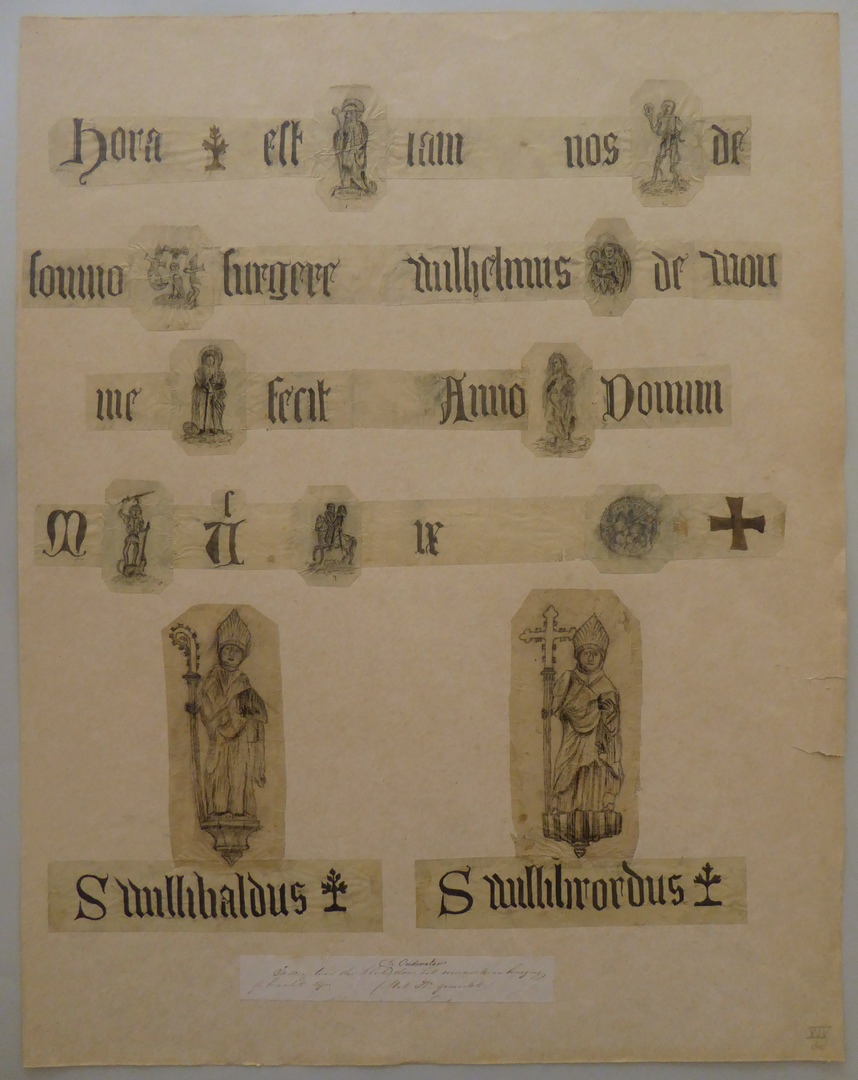 Hora est iam nos de
somno surgere wilhelmus de mou
me fecit Anno Domini
c
M V ix
S willibaldus S willibrordus
Oudewater